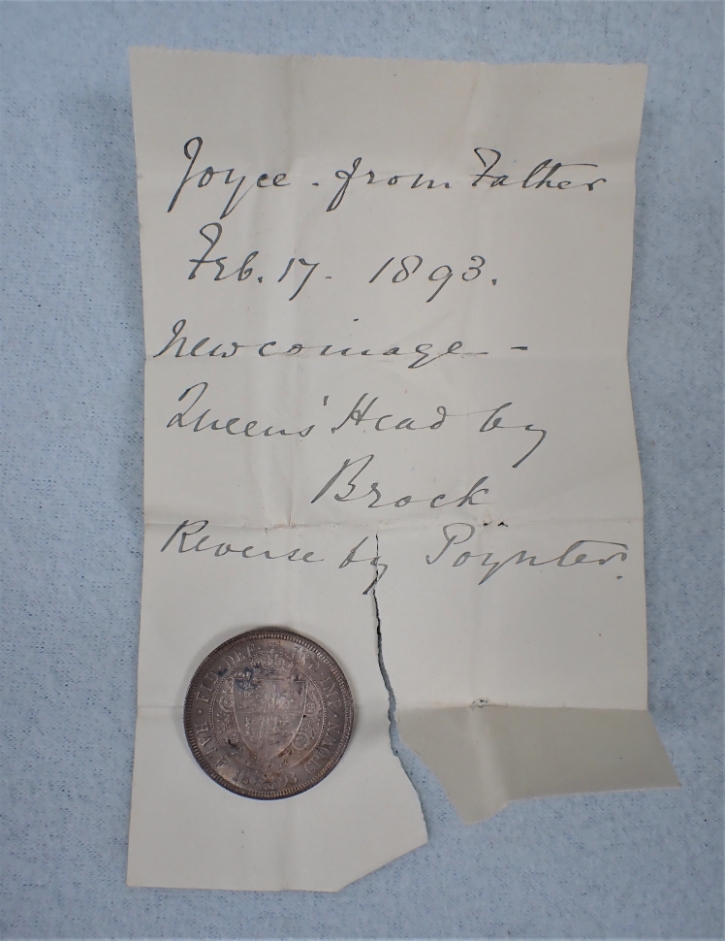 Joyce . from Father
Feb. 17 - 1893.
New coinage -
Queens' Head by
Brock
Reverse by Poynter.
FID · DEF
IND · IMP
HALF
CROWN